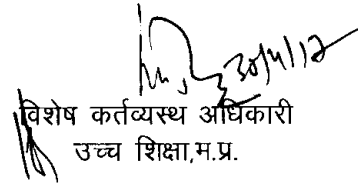 30/4/12
विशेष कर्तव्यस्थ अधिकारी
उच्च शिक्षा,म.प्र.